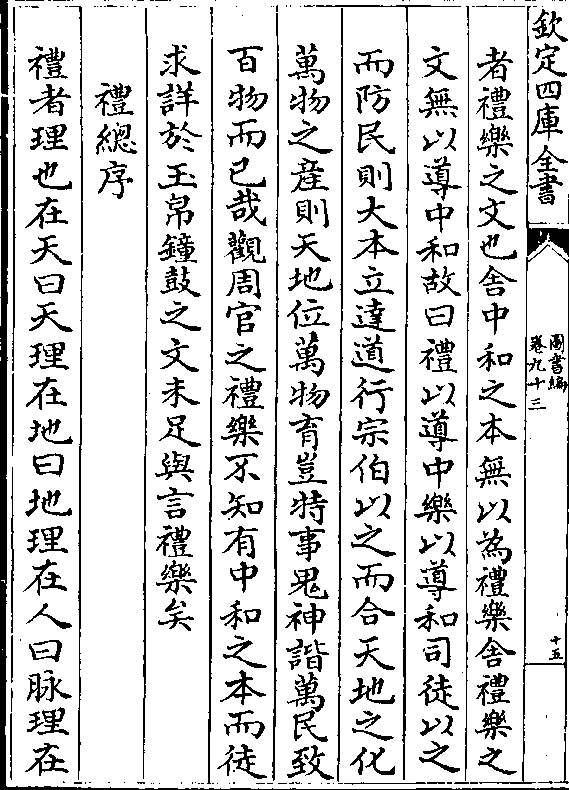 欽定四庫全書
圖書編
卷九十三
十五
者禮樂之文也舍中和之本無以為禮樂舍禮樂之
文無以導中和故曰禮以導中樂以導和司徒以之
而防民則大本立達道行宗伯以之而合天地之化
萬物之產則天地位萬物育豈特事鬼神諧萬民致
百物而已哉觀周官之禮樂不知有中和之本而徒
求詳於玉帛鐘鼓之文未足與言禮樂矣
禮總序
禮者理也在天曰天理在地曰地理在人曰脉理在